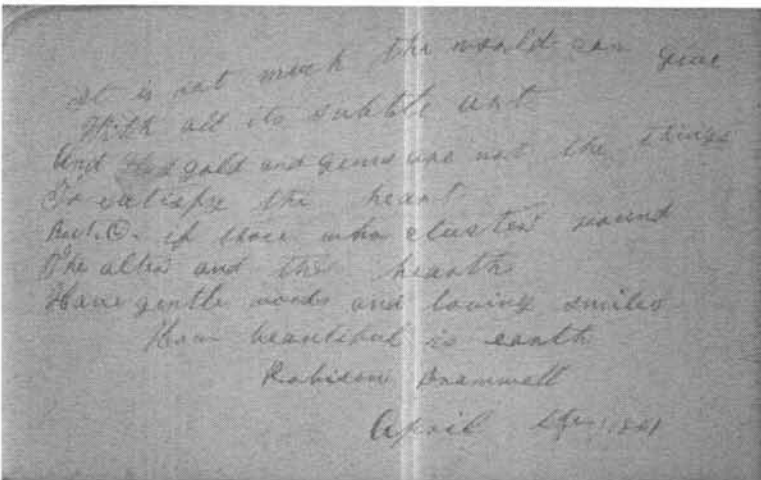 It is not much the world can give
With all its subtle art
And gold and gems are not the things
To satisfy the heart
But. O. if those who cluster round
The alter and the hearth
Have gentle words and loving smiles
How beautiful is earth
Robison Bramwell
April